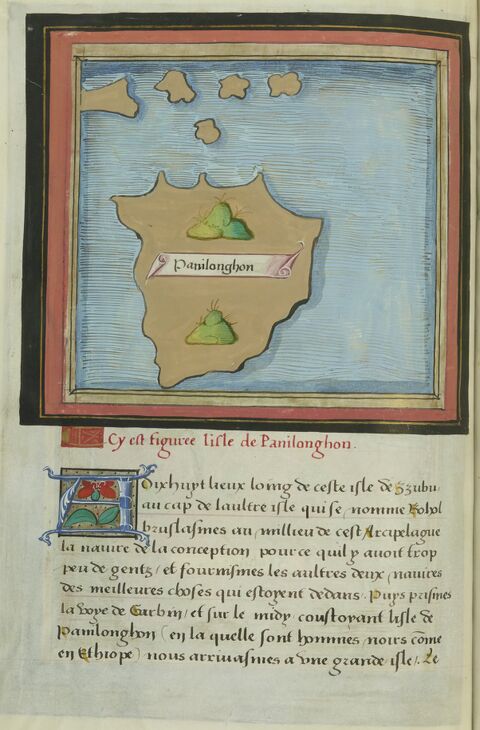 Panilonghon
Cy est figuree lisle de Panilonghon.
A Dixhuyt lieux loing de ceste isle de Zzubu
au cap de laultre isle qui se nomme Bohol
bruslasmes au millieu de cest Arcipelague
la navire de la conception pour ce quil y avoit trop
peu de gentz / et fournismes les aultres deux navires
des meilleures choses qui estoyent dedans. Puys prismes
la voye de Garbin / et sur le midy coustoyant lisle de
Panilonghon (en la quelle sont hommes noirs cõme
en Ethiope) nous arrivasmes a une grande isle /. Le